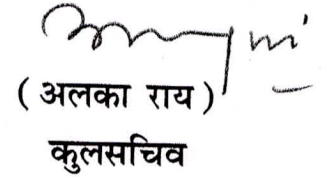 ( अलका राय )
कुलसचिव